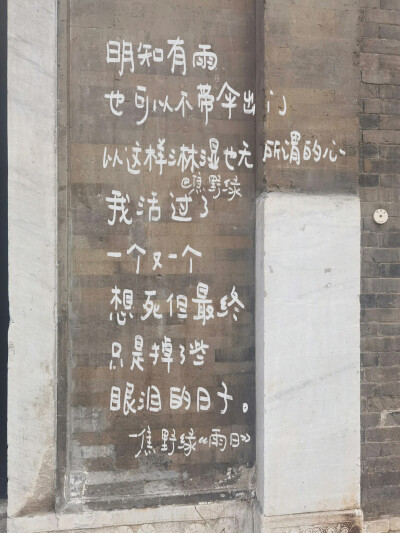 明知有雨
也可以不带伞出门
以这样淋湿也无所谓的心
@焦野绿
我活过了
一个又一个
想死但最终
只是掉了些
眼泪的日子。
焦野绿《雨日》